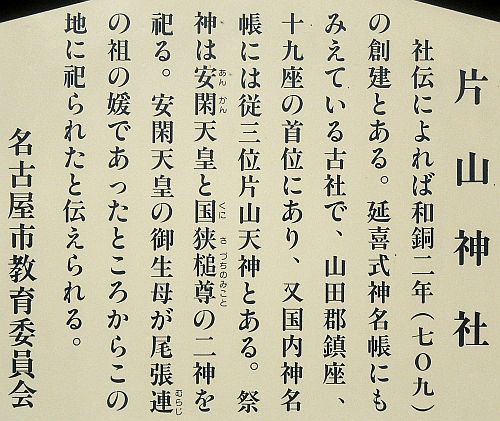 片山神社
社伝によれば和銅二年(七〇九)
の創建とある。延喜式神名帳にも
みえている古社で、山田郡鎮座、
十九座の首位にあり、又国内神名
帳には従三位片山天神とある。祭
神は安閑天皇と国狭槌尊の二神を
あんかん くにさづちのみこと
祀る。安閑天皇の御生母が尾張連
むらじ
の祖の媛であったところからこの
地に祀られたと伝えられる。
名古屋市教育委員会